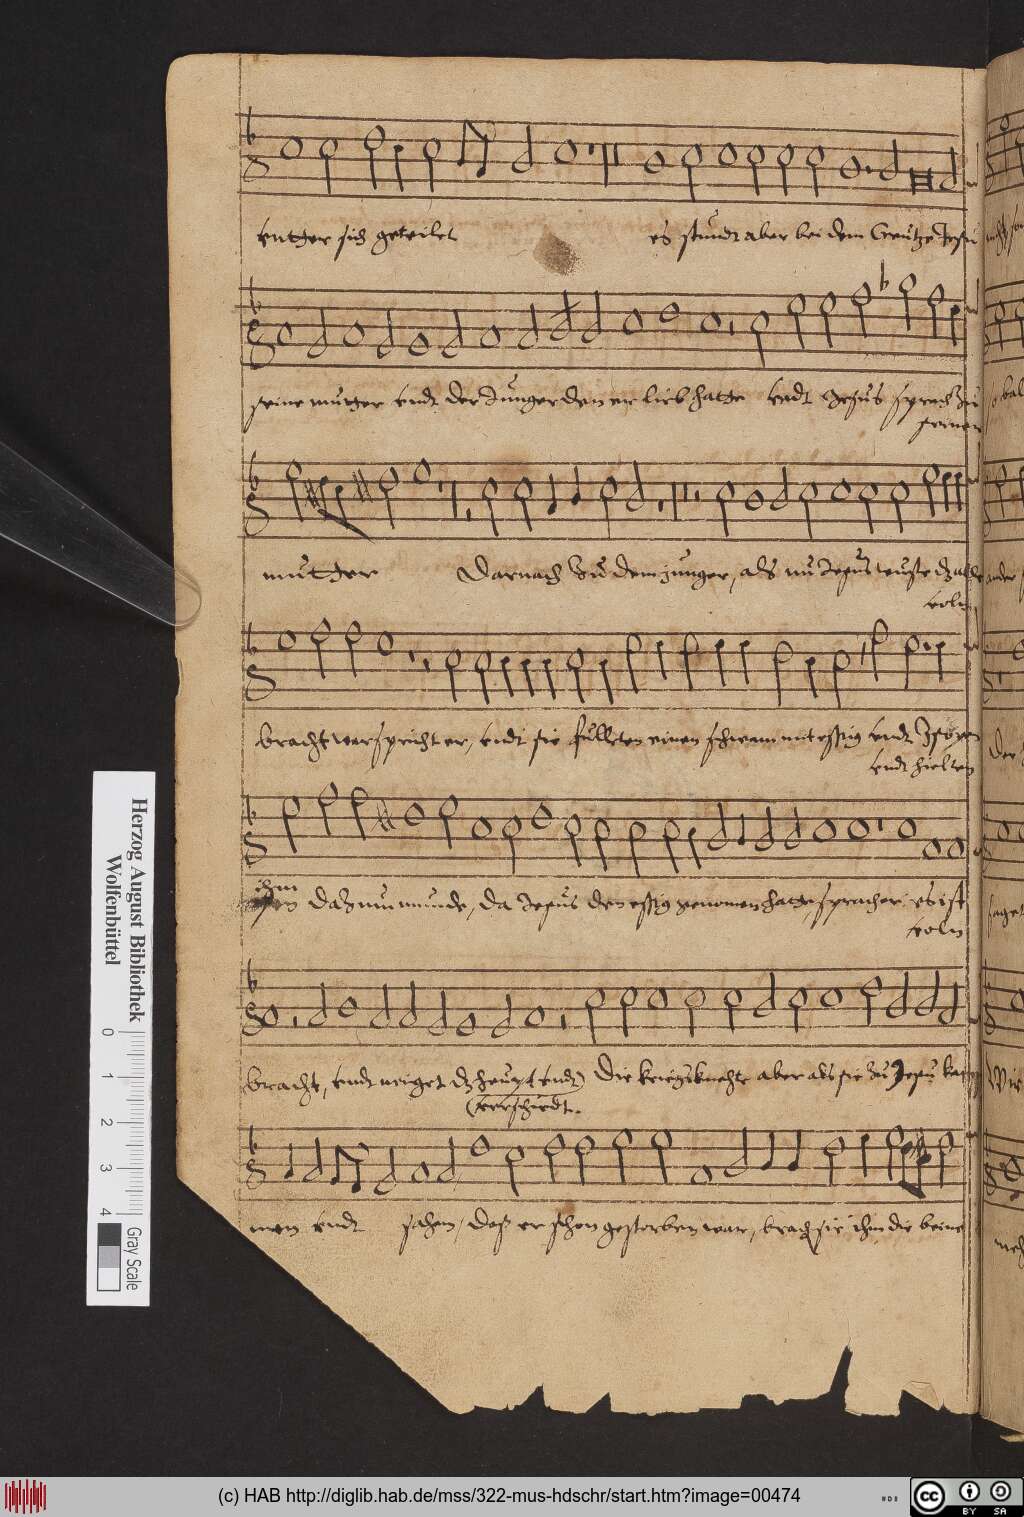 unter sich geteilet es stundt aber bei dem Creutze Jesu
seine mutter undt der Junger den er lieb hatte undt Jesus sprach zu
seiner
mutter Darnach zu dem junger, als nu Jesus wuste dz alles
voln
bracht war spricht er, undt sie fulleten einen schwam mit essig undt Isopen
undt hielten
ihm
dar zum munde, da Jesus den essig genomen hatte, sprach er es ist
voln
bracht, undt neiget dz heupt undt Die kriegsknechte aber als sie zu Jesu kam
(verschiedt.
men undt sahen, das er schon gestorben war, brach sie ihm die beine
Herzog August Bibliothek
Wolfenbüttel
0 1 2 3 4
Gray Scale
(c) HAB http://diglib.hab.de/mss/322-mus-hdschr/start.htm?image=00474
cc BY SA